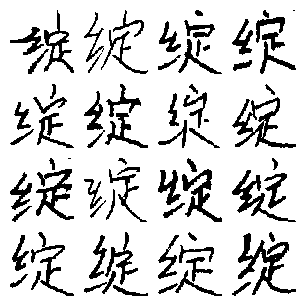 绽绽绽绽
绽绽绽绽
绽绽绽绽
绽绽绽绽